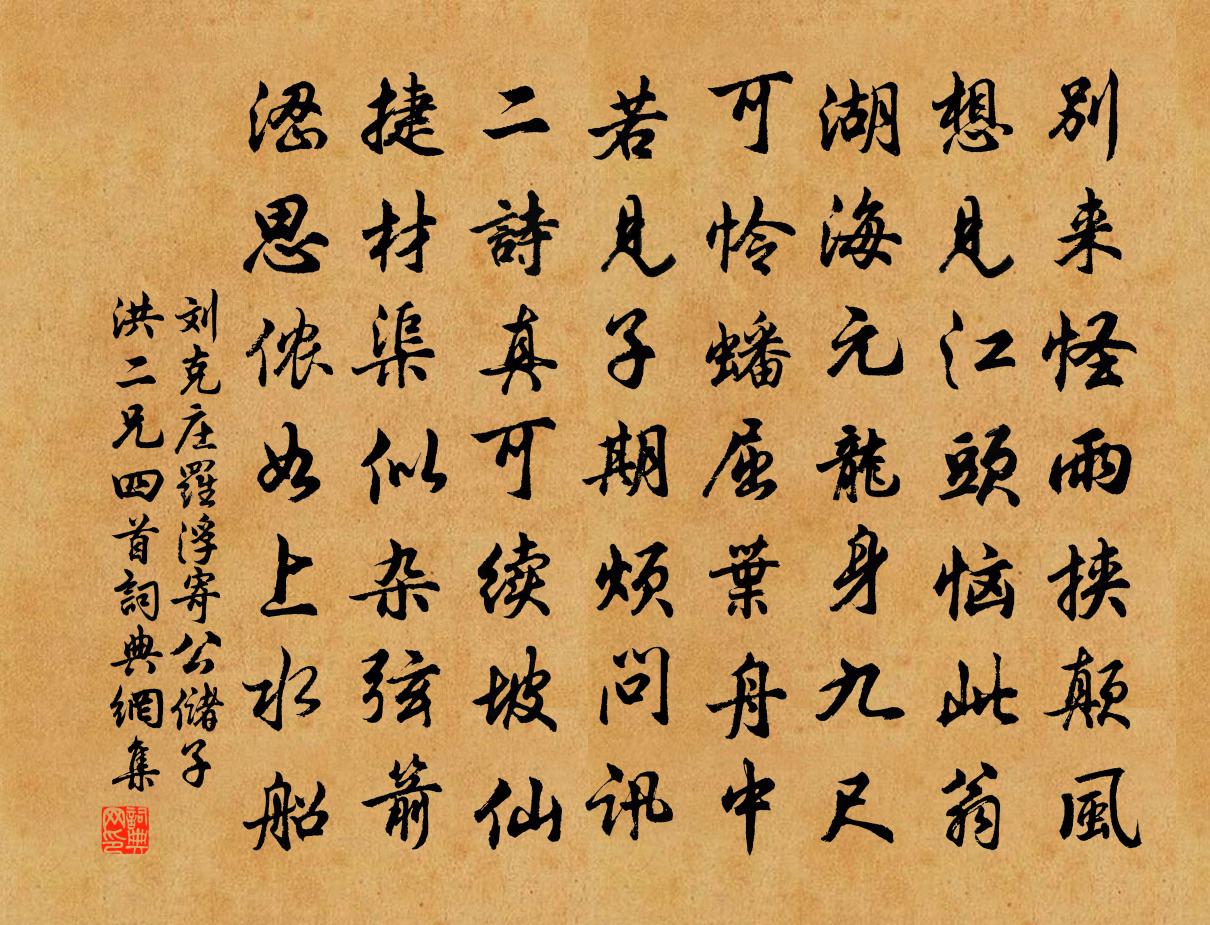 别来怪雨挟颠風
想見江頭恼此翁
湖海元龍身九尺
可怜蟠屈葉舟中
若見子期烦問讯
二詩真可续坡仙
捷材渠似杂弦箭
涩思侬如上水船
刘克庄羅浮寄公儲子
洪二兄四首詞典網集
詞典
网印